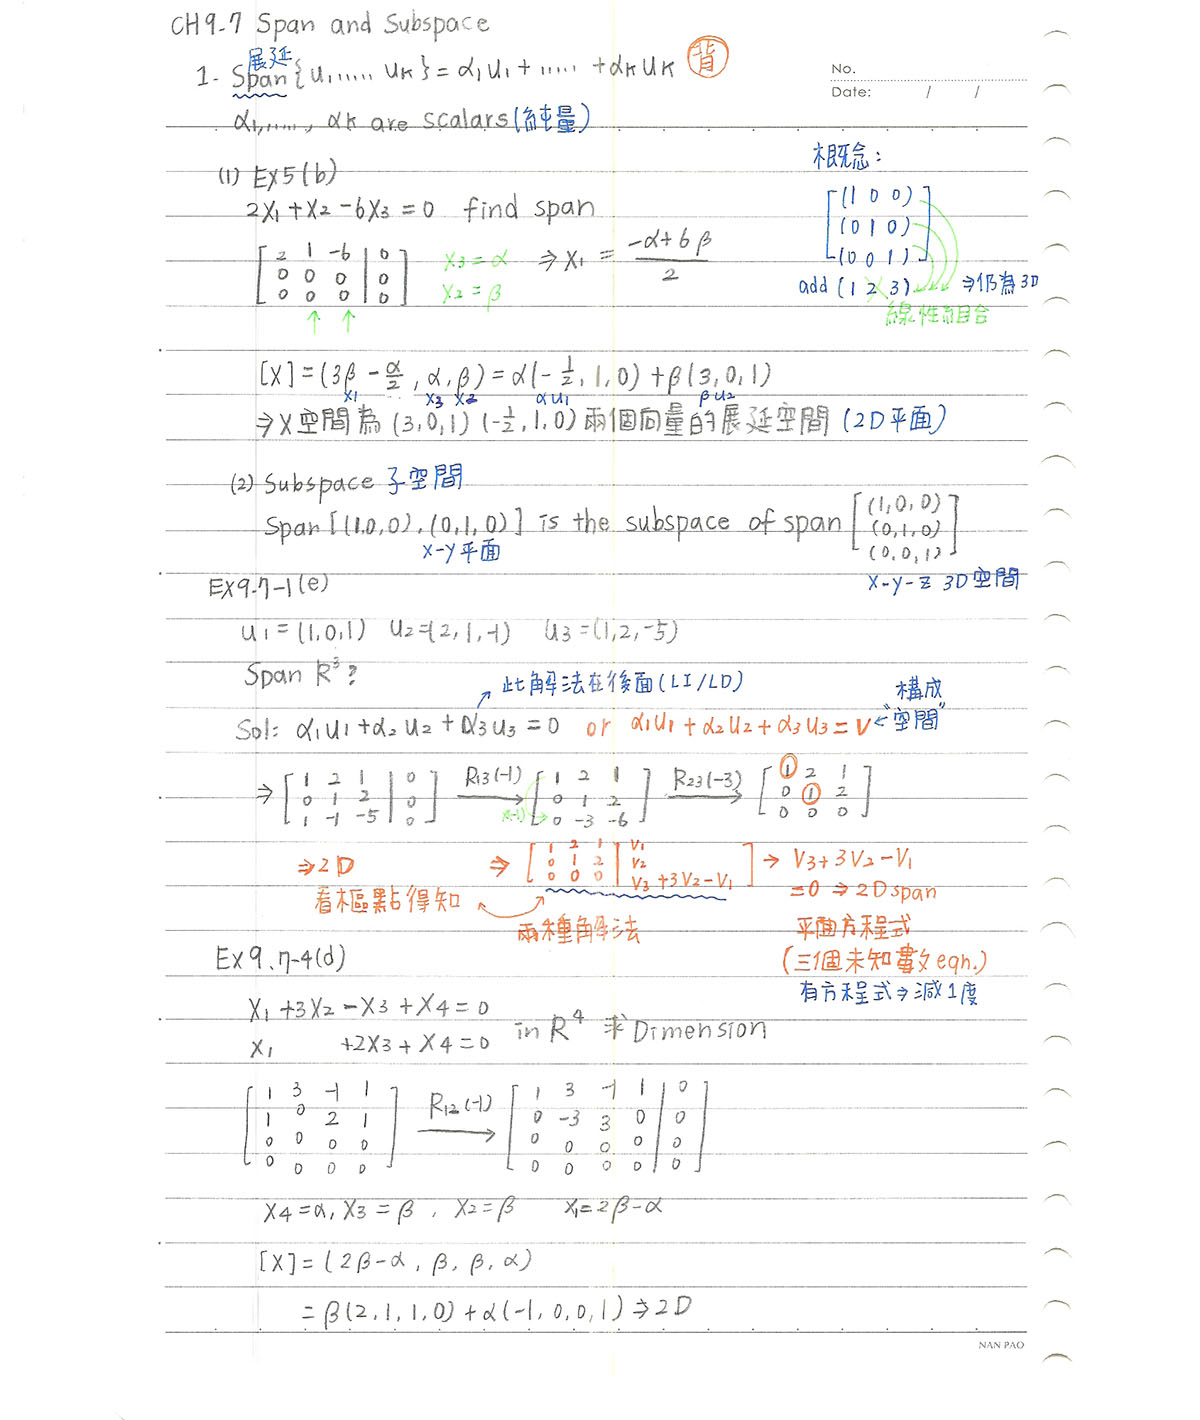 CH9-7 Span and Subspace
展延
1- Span{u1,.....uk}=α1u1+.....+αkuk 背
No.
Date: / /
α1,....., αk are scalars(純量)
(1) EX5(b)
2X1+X2-6X3=0 find span
[2 1 -6 | 0
0 0 0 | 0
0 0 0 | 0]
X3=α
X2=β
⇒X1=(-α+6β)/2
↑ ↑
概念:
[(1 0 0)
(0 1 0)
(0 0 1)]
add (1 2 3) ⇒仍為3D
線性組合
[X]=(3β-α/2, α, β)=α(-1/2, 1, 0)+β(3, 0, 1)
X1 X3 X2 αu1 βu2
⇒X空間為(3,0,1)(-1/2,1,0)兩個向量的展延空間(2D平面)
(2) Subspace 子空間
Span[(1,0,0),(0,1,0)] is the subspace of span[(1,0,0)
(0,1,0)
(0,0,1)]
X-Y平面
X-Y-Z 3D空間
EX9.7-1(e)
u1=(1,0,1) u2=(2,1,-1) u3=(1,2,-5)
Span R³?
此解法在後面(LI/LD)
構成
"空間"
Sol: α1u1+α2u2+α3u3=0 or α1u1+α2u2+α3u3=V←
⇒[1 2 1 | 0
0 1 2 | 0
1 -1 -5 | 0]
R13(-1)→
[1 2 1
0 1 2
0 -3 -6]
R23(-3)→
[1 2 1
0 1 2
0 0 0]
⇒2D
看樞點得知
⇒[1 2 1 | V1
0 1 2 | V2
0 0 0 | V3+3V2-V1]
兩種解法
→V3+3V2-V1
=0⇒2D span
平面方程式
(三個未知數eqn.)
有方程式⇒減1度
EX9.7-4(d)
X1+3X2-X3+X4=0
X1 +2X3+X4=0
in R⁴ 求Dimension
[1 3 -1 1
1 0 2 1
0 0 0 0
0 0 0 0]
R12(-1)→
[1 3 -1 1 | 0
0 -3 3 0 | 0
0 0 0 0 | 0
0 0 0 0 | 0]
X4=α, X3=β, X2=β X1=2β-α
[X]=(2β-α, β, β, α)
=β(2,1,1,0)+α(-1,0,0,1)⇒2D
NAN PAO